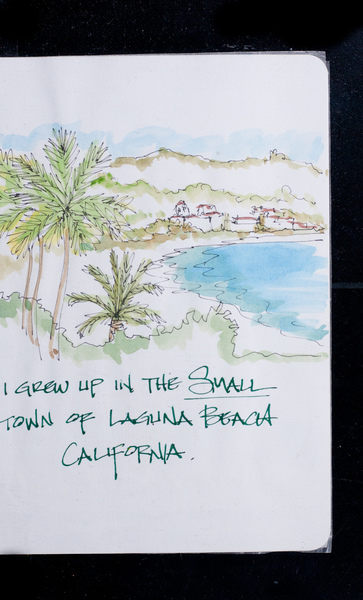 I GREW UP IN THE SMALL
TOWN OF LAGUNA BEACH
CALIFORNIA.